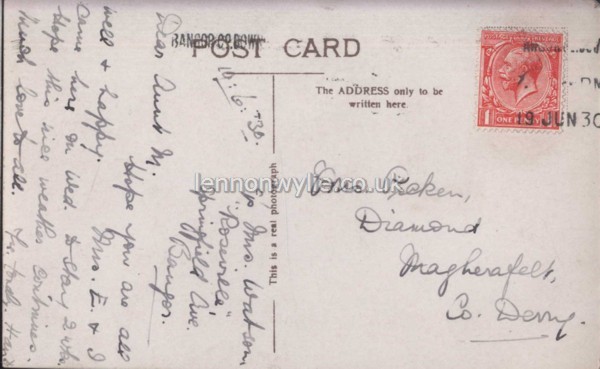 BANGOR CO. DOWN
POST CARD
The ADDRESS only to be
written here.
19 JUN 30
ONE PENNY
This is a real photograph
lennonwylie.co.uk
Mrs.
Diamond
Magherafelt,
Co. Derry.
19.6.'30.
c/o Mrs. Watson,
"Roseville"
Springfield Ave.
Bangor.
Dear Aunt M.
Hope you are all
well & happy. Mrs. E. & I
came here on Wed. to stay 2 wks.
Hope this nice weather continues.
Much love to all.